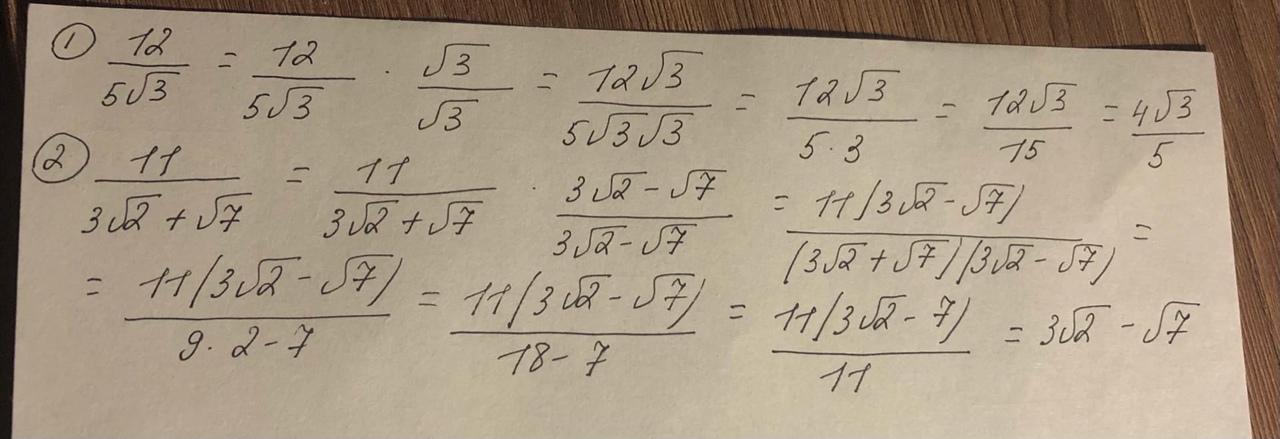 ① 12/(5√3) = 12/(5√3) · √3/√3 = 12√3/(5√3√3) = 12√3/(5·3) = 12√3/15 = 4√3/5
② 11/(3√2 + √7) = 11/(3√2 + √7) · (3√2 - √7)/(3√2 - √7) = 11(3√2 - √7)/((3√2 + √7)(3√2 - √7)) =
= 11(3√2 - √7)/(9·2 - 7) = 11(3√2 - √7)/(18 - 7) = 11(3√2 - 7)/11 = 3√2 - √7